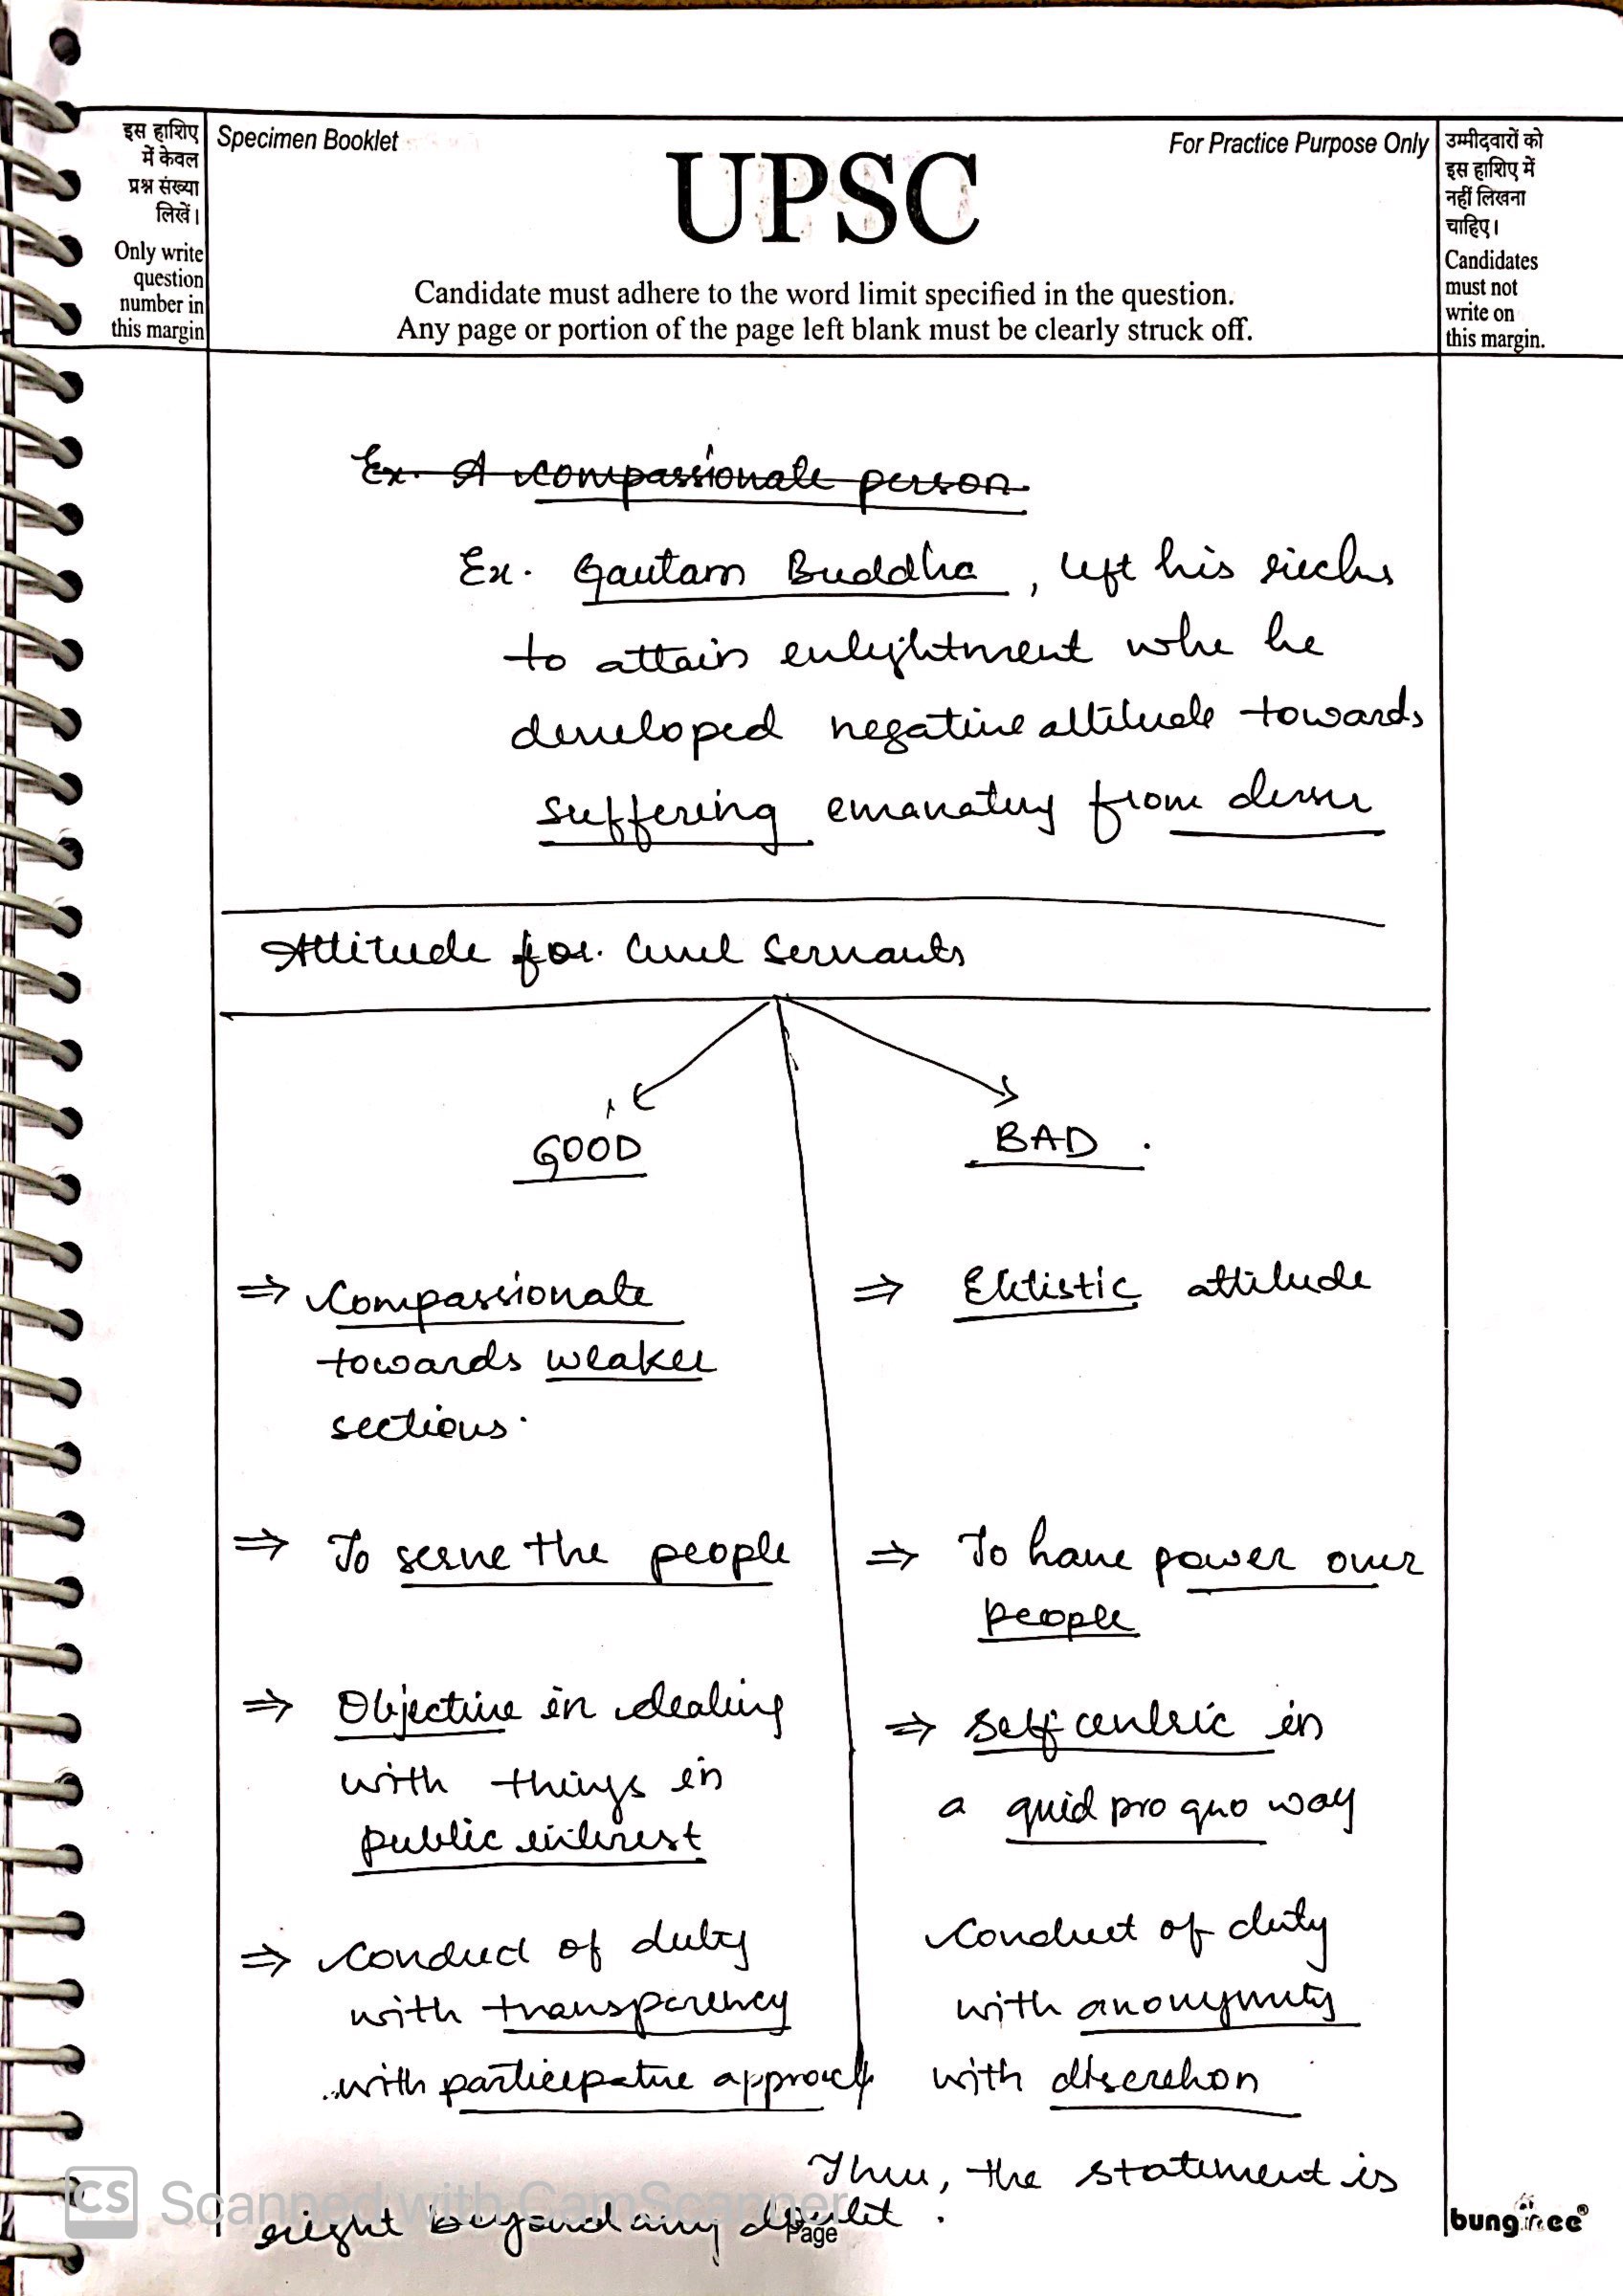 इस हाशिए
में केवल
प्रश्न संख्या
लिखें।
Only write
question
number in
this margin
Specimen Booklet
For Practice Purpose Only
UPSC
Candidate must adhere to the word limit specified in the question.
Any page or portion of the page left blank must be clearly struck off.
उम्मीदवारों को
इस हाशिए में
नहीं लिखना
चाहिए।
Candidates
must not
write on
this margin.
Ex. A compassionate person
Ex. Gautam Buddha, left his riches
to attain enlightment he
developed negative attitude towards
suffering emanating from
Attitude for Civil Servants
GOOD
BAD.
⇒ Compassionate
towards weaker
sections.
⇒ attitude
⇒ To serve the people
⇒ To have power over
people
⇒ Objective in dealing
with things in
public interest
⇒ Self centric in
a quid pro quo way
⇒ Conduct of duty
with transparency
with participative approach
Conduct of duty
with anonymity
with discretion
Thus, the statement is
right beyond any doubt.
CS Scanned with CamScanner
Page
bungree®